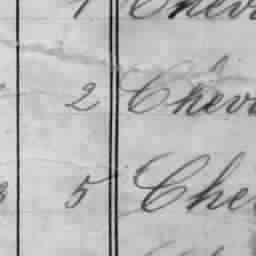 1 Chev
2 Chev
5 Che